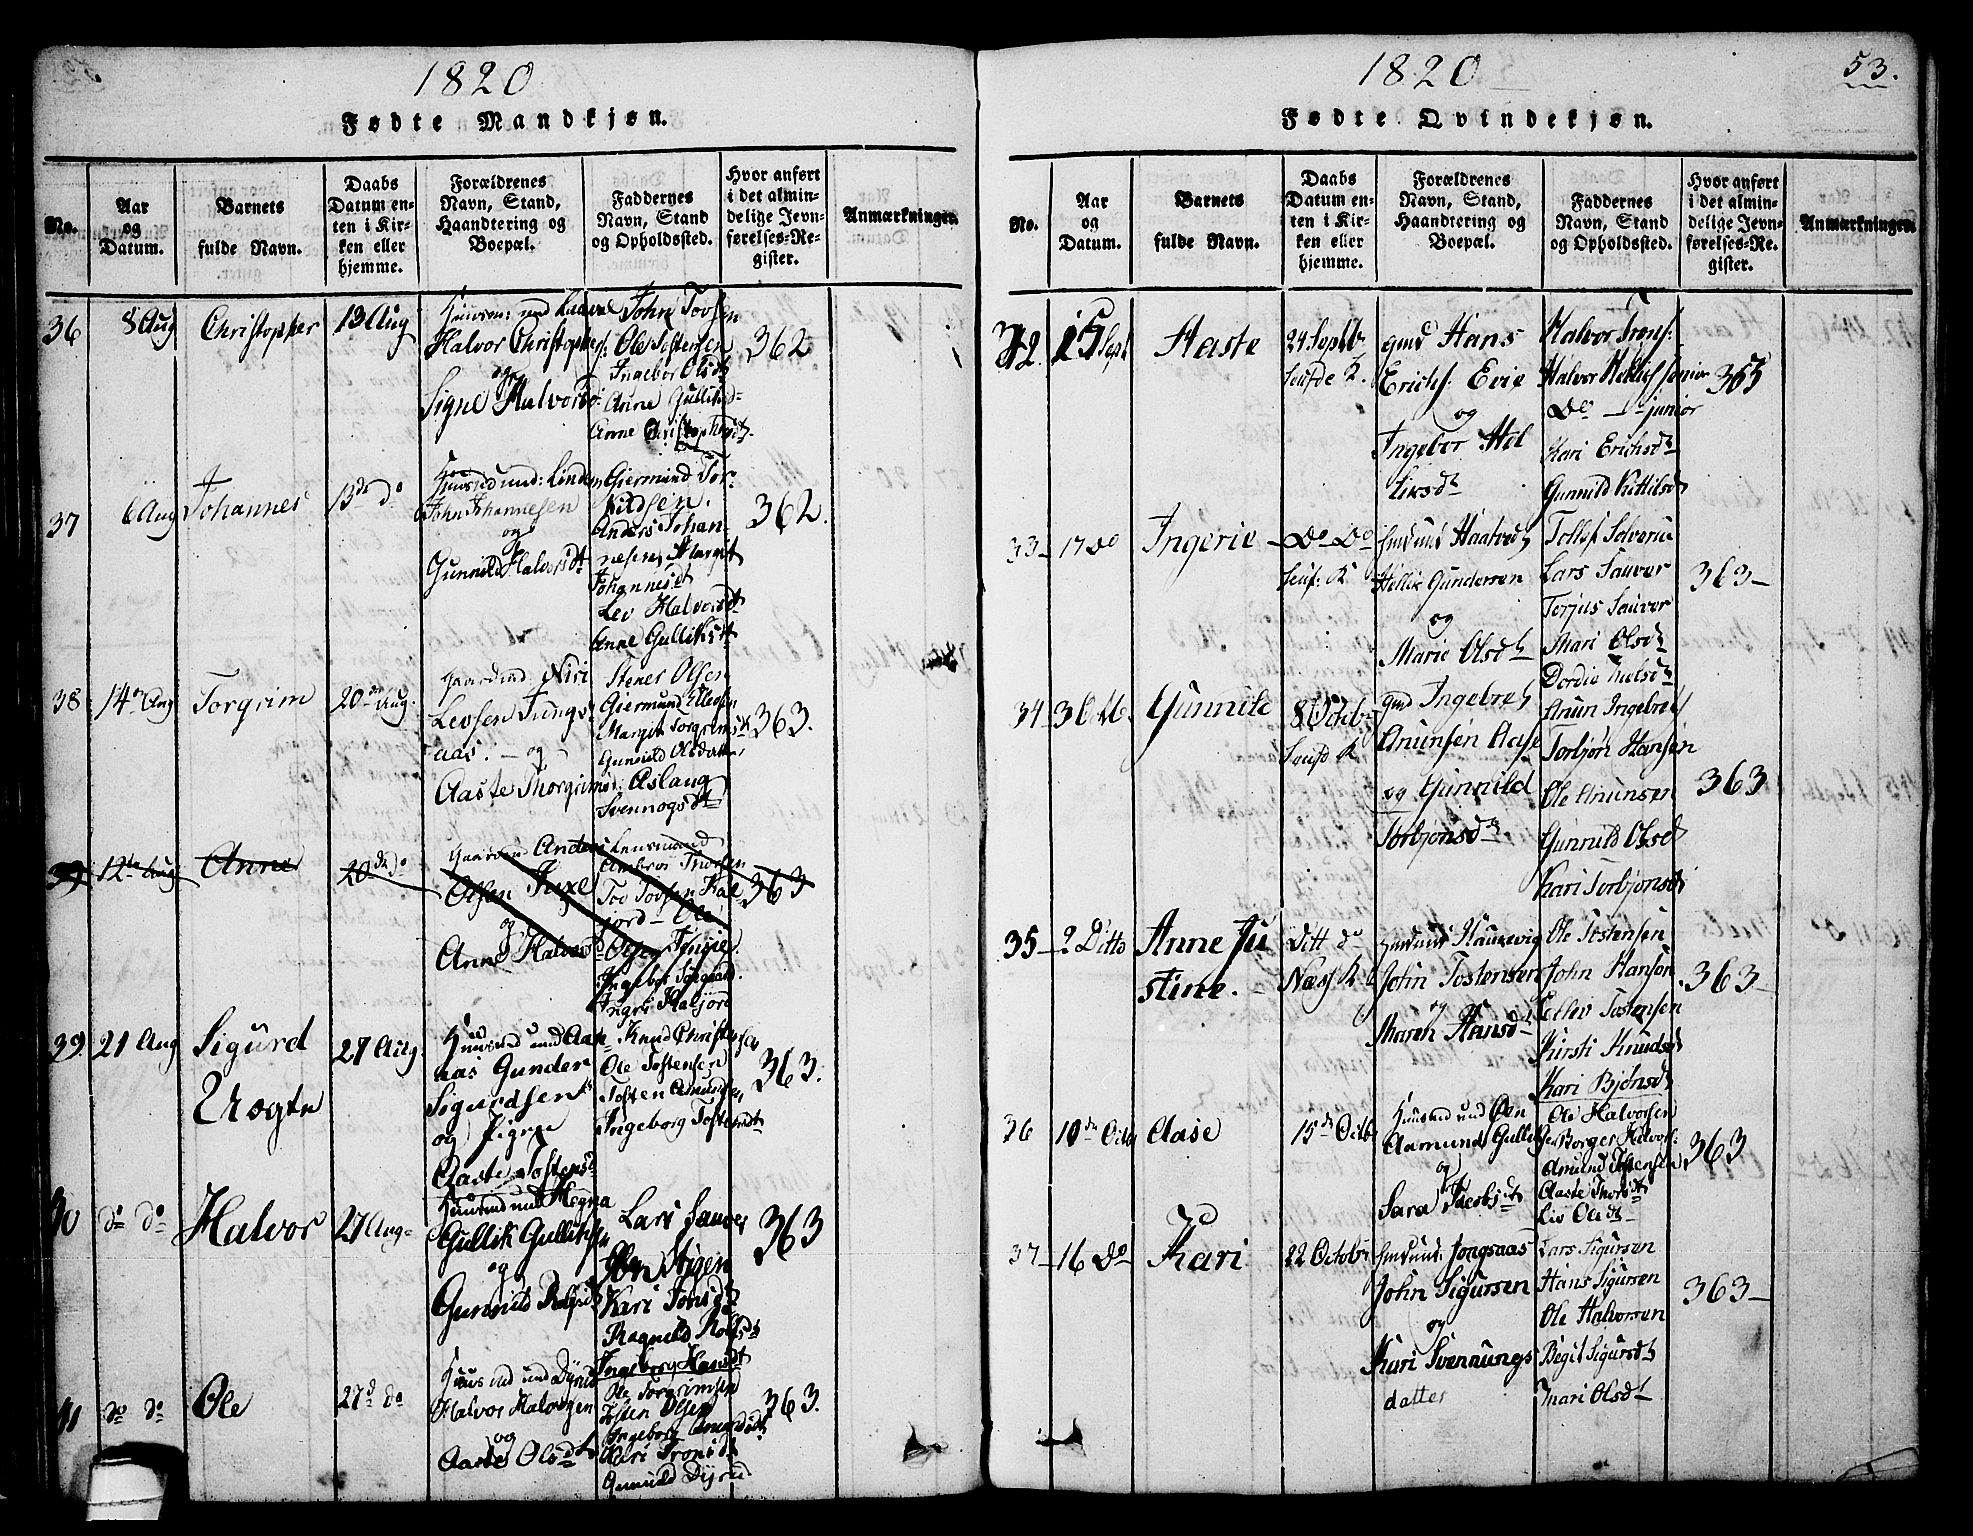 1820
Fødte Mandkjøn.
No.
Aar
og
Datum.
Barnets
fulde Navn.
Daabs
Datum en-
ten i Kir-
ken eller
hjemme.
Forældrenes
Navn, Stand,
Haandtering og
Boepæl.
Faddernes
Navn, Stand
og Opholdssted.
Hvor anført
i det almin-
delige Jevn-
førelses-Re-
gister.
Anmærkninger.
36
8 Aug
Christopher
13 Aug
Halvor Christophers:
og
Signe Halvorsd:
John Tovsen
Ole Tostensen
Ingebor Olsdt
Anne Gulliksd-
Anne Christophersdt.
362
37
6 Aug
Johannes
13de do
John Johannesen
og
Gunnild Halvorsdt
Giermund Tor-
kildsen.
Anders Johan-
nesen Margit
Johannesdt
Lev Halvorsdt
Anne Gulliksdt
362.
38
14de Aug
Torgrim
20de Aug.
Levsen Jungs-
aas. — og
Aaste Thorgrims:
Stener Olsen
Giermund Ellevsen
Margit Torgrimsdt
Gunnild Olsdatter
Aslaug
Svennogsdt
363.
39
12te Aug
Anne
20de do
Gaardm Anders
Olsen
og
Anne Halvorsd
Lensmand
Ambros Thorsen
Tov Tovsen Kal
jord — Ole
Olsen
Ingebor
Ingri Kaljord
363
39
21 Aug
Sigurd
27 Aug.
aas Gunder
Sigurdsen
og Pigen
Aaste Tostensd
Knud Christensen
Ole Tostensen
Tosten Amundsen
Ingeborg Tostensdt
363.
40
do do
Halvor
27 Aug-
Gullik Gulliksen
og
Gunnild
Lars Sauver
Kari Tovsdt
Ragnild Rolfsdt
Ingeborg Hansdt
363
41
do do
Ole
27de do
Halvor Halvorsen
og
Aaste Olsdt
Ole Torgrimsen
Tosten Olsen
Ingeborg Amundsdt.
Kari Tronsdt
Gunnild Dyrud
363.
1820
53.
Fødte Qvindekjøn.
No.
Aar
og
Datum.
Barnets
fulde Navn.
Daabs
Datum en-
ten i Kir-
ken eller
hjemme.
Forældrenes
Navn, Stand,
Haandtering og
Boepæl.
Faddernes
Navn, Stand
og Opholdssted.
Hvor anført
i det almin-
delige Jevn-
førelses-Re-
gister.
Anmærkninger.
32.
15 Sept
Aaste
24 Septb
gmd Hans
Erichs: Evie
og
Ingebor Hel
liksdt
Halvor Trons:
Halvor senior
Do — junior
Kari Erichsdt
Gunnild Kittilsdt
365
33-
17 do
Ingerie
Do Do
Hellik Gundersen
og
Marie Olsdt
Tollef Solverud
Lars Sauver
Torjus Sauver
Mari Olsdt
Dordie Nielsdt
363-
34
Gunnild
8 Octb-
gmd Ingebret
Anunsen Aase
og Gunnild
Torbjonsdt
Anun Ingebret
Torbjørn Hansen
Ole Anunsen
Gunnild Olsd
Kari Torbjonsdt
363
35-
2 Ditto
Anne Ju
stine.
Ditt do
Næss K
John Tostensen
og
Maren Hansdt
Ole Tostensen
John Hanson
Ellev Tostensen
Kirsti Knudsd
Kari Bjønsdt
363-
36
10de Octb
Aase
15de Octb
Huusmd und Øen
Aamund Gullik
og
Sara Jacobsdt
Ole Halvorsen
Borger Halvors:
Amund Tostensen
Aaste Thorsdt
Liv Olsdt
363
37-
16 Do
Kari
22 Octobr
Gmd und: Jongsaas
John Sigursen
og
Kari Svennungs
datter
Lars Sigursen
Hans Sigursen
Ole Halvorsen
Begit Sigursdt
Mari Olsdt
363-